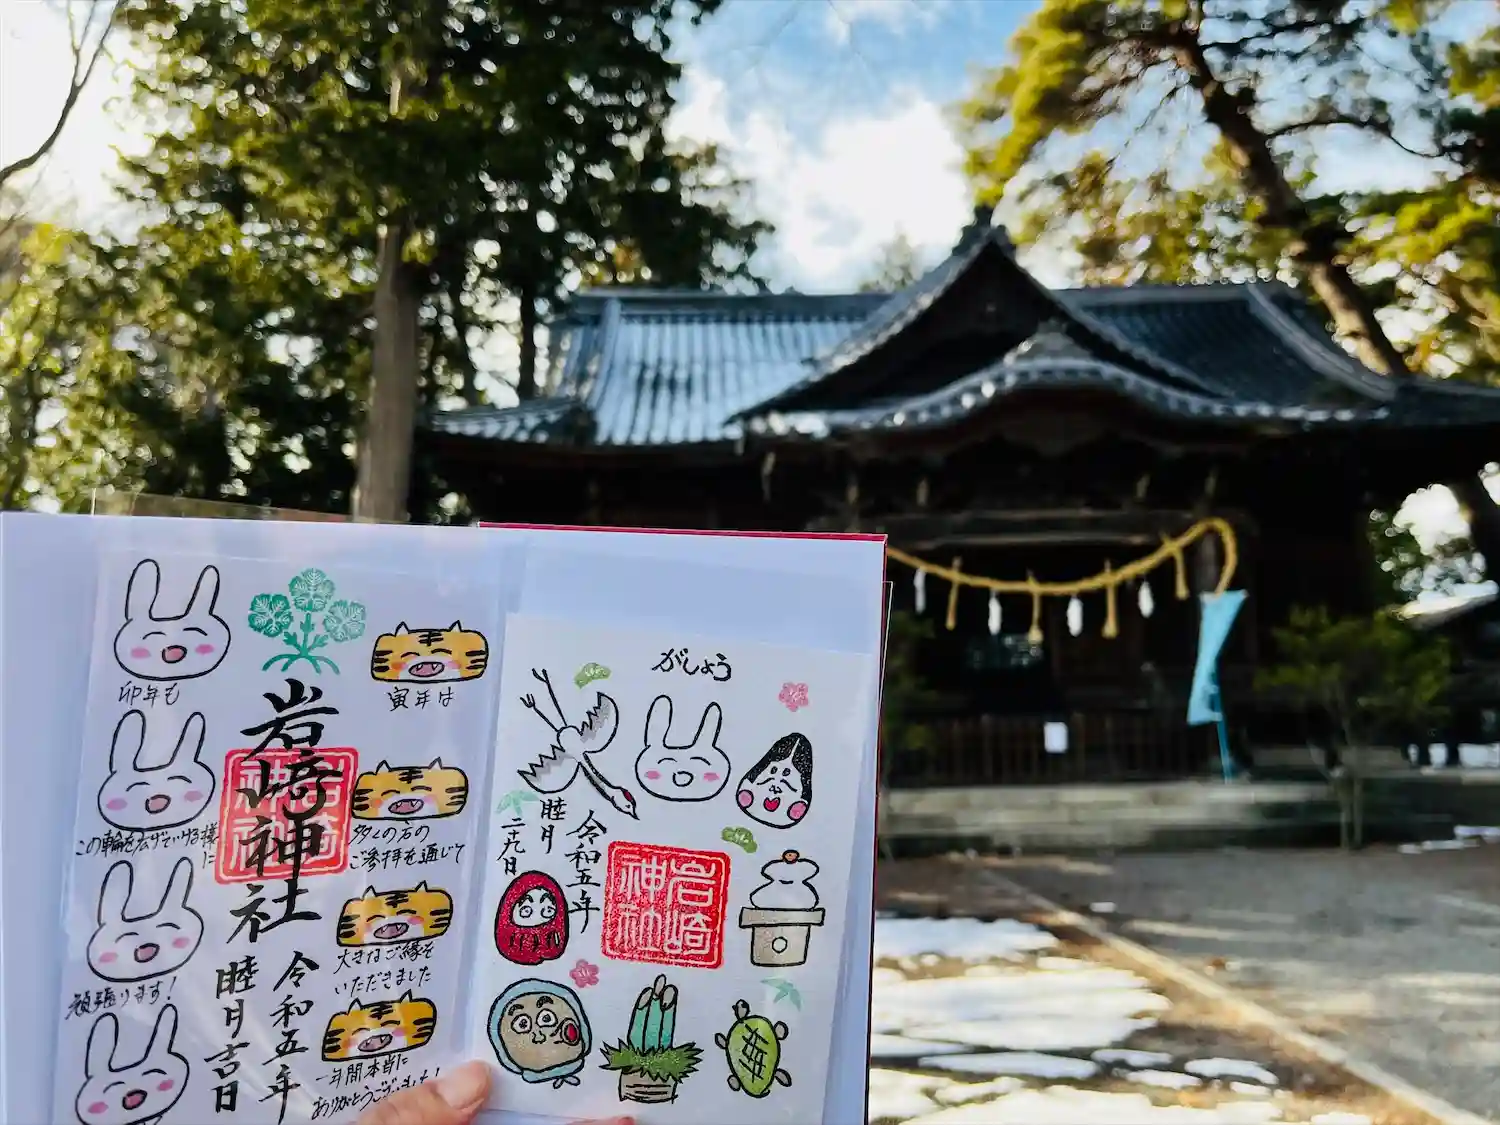 岩崎神社
岩崎神社
令和五年
睦月吉日
寅年は
多くの方の
ご参拝を通じて
大きなご縁を
いただきました
一年間本当に
ありがとうございました!
卯年も
この輪を広げていける様
に
頑張ります!
がしょう
令和五年
睦月
二十九日
岩崎神社